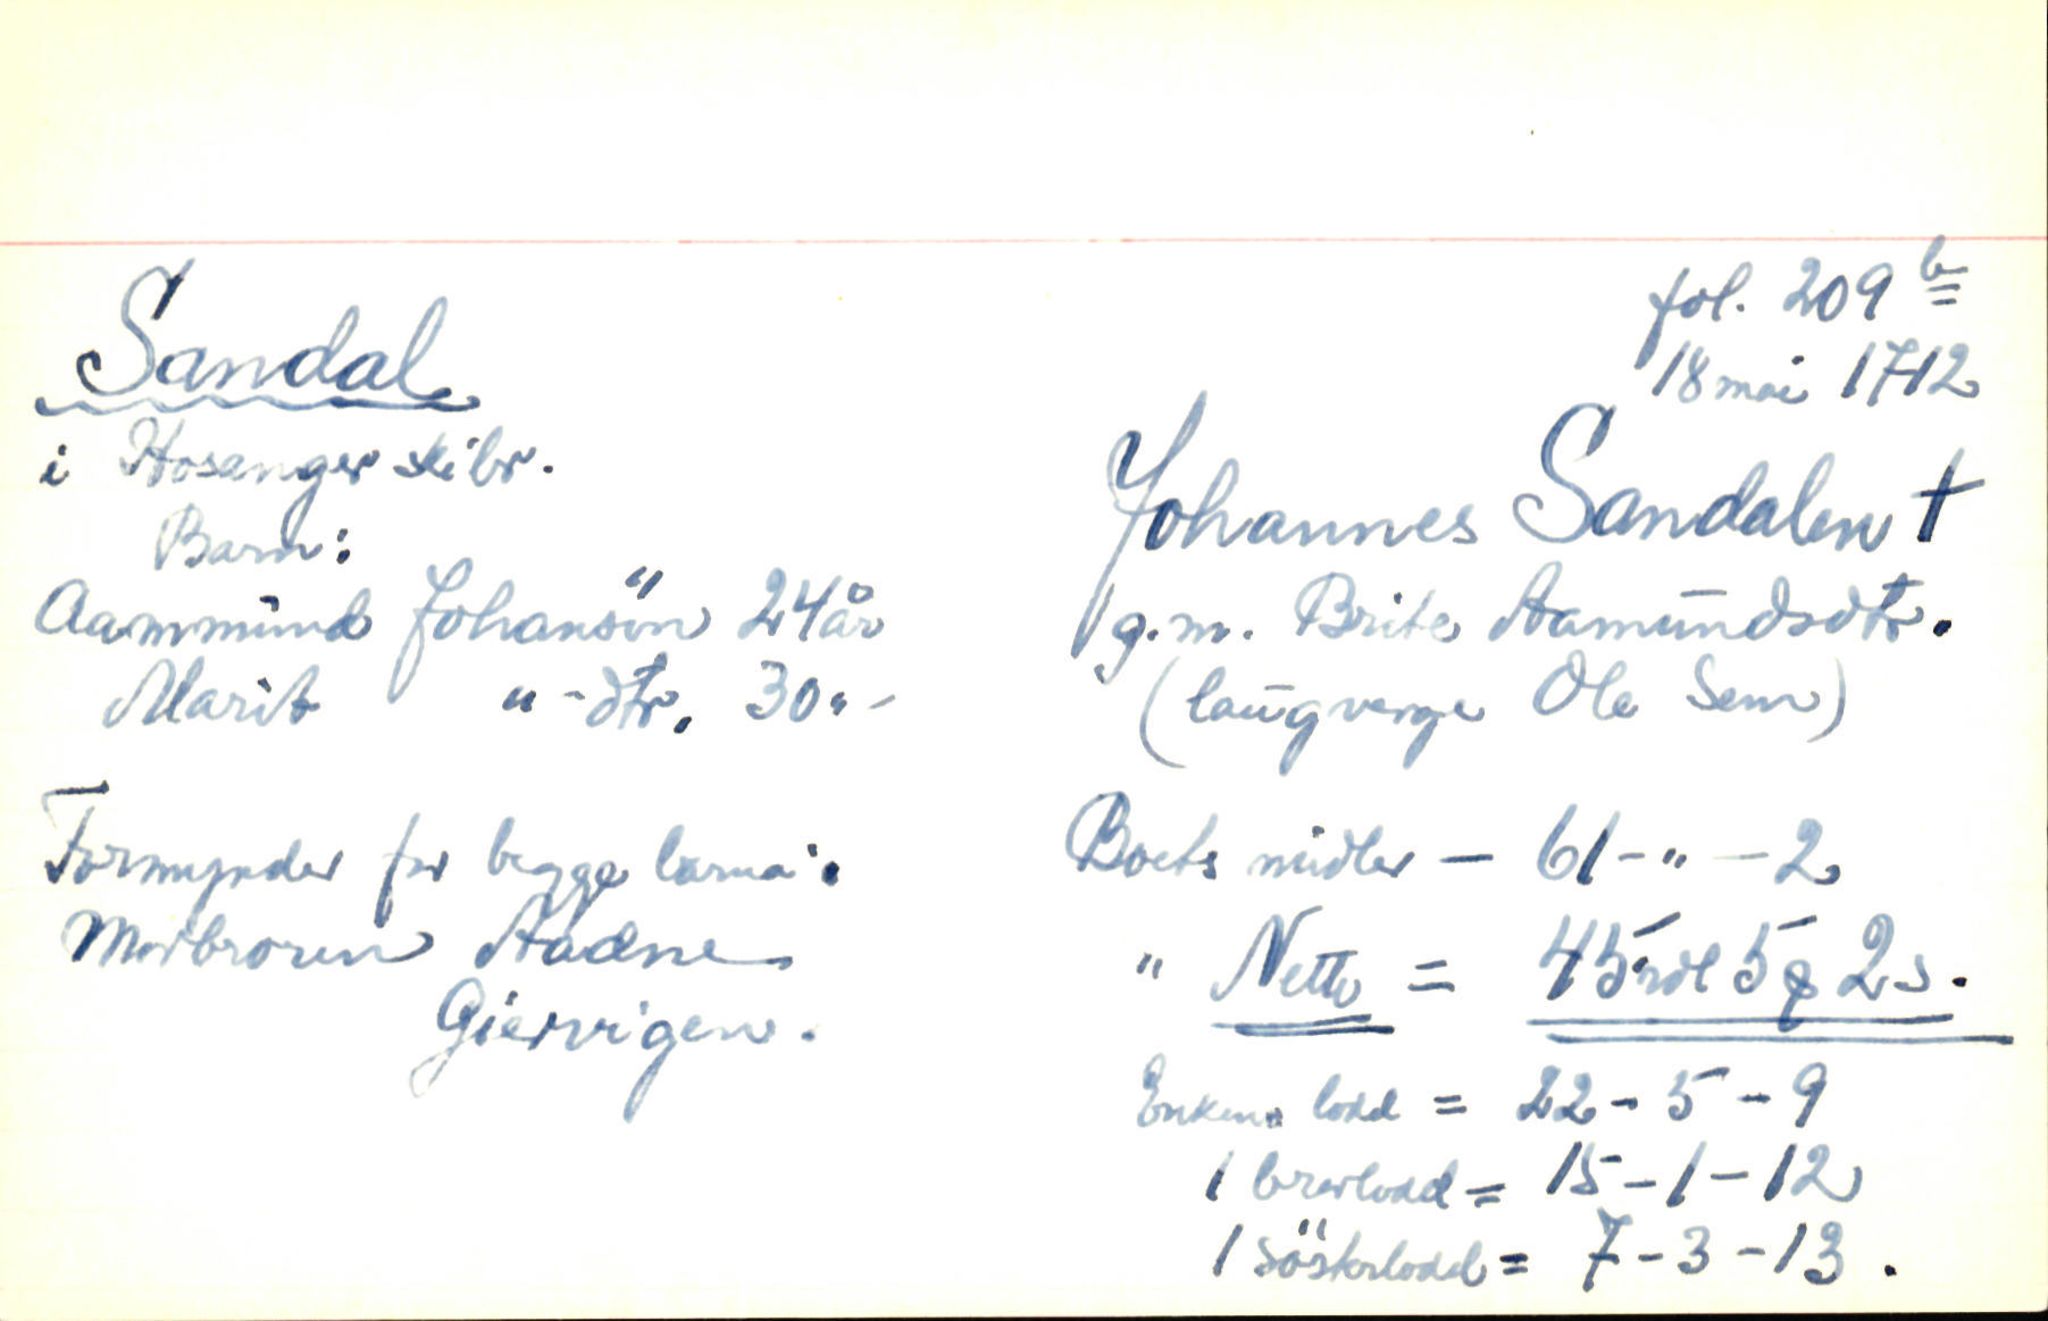 fol. 209 b
18 mai 1712
Sandal
i Hosanger skibr.
Barn:
Aammund Johansön 24 år
Marit " - dtr. 30 " -
Formynder for begge barna:
Morbroren Aadne
Giervigen.
Johannes Sandalen †
g.m. Brite Aamundsdtr.
(laugverge Ole Sem)
Boets midler - 61 - " - 2
" Netto = 45 rdl 5 q 2 s.
Enkens lodd = 22 - 5 - 9
1 brorlodd = 15 - 1 - 12
1 sösterlodd = 7 - 3 - 13.